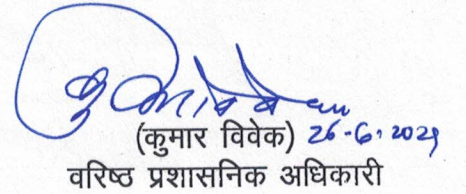 (कुमार विवेक) 26-6-2029
वरिष्ठ प्रशासनिक अधिकारी